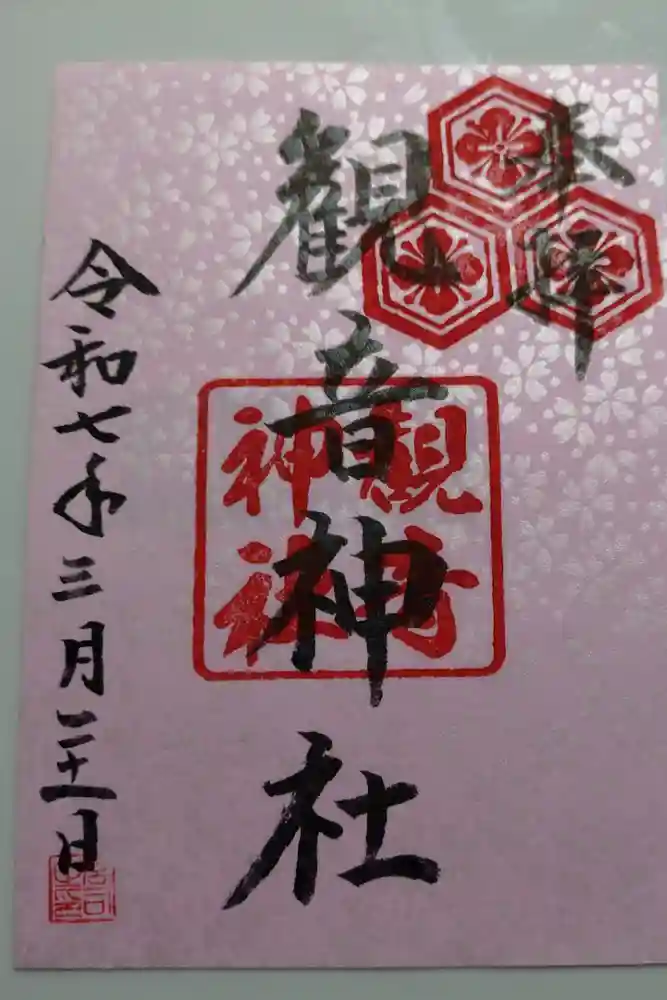 奉拝
観音神社
神社
令和七年三月二十一日